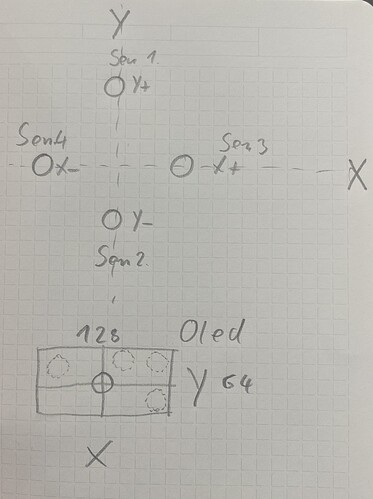 Y
Sen 1.
Y+
Sen4
Sen3
X-
X+
X
Y-
Sen2.
128 Oled
Y 64
X